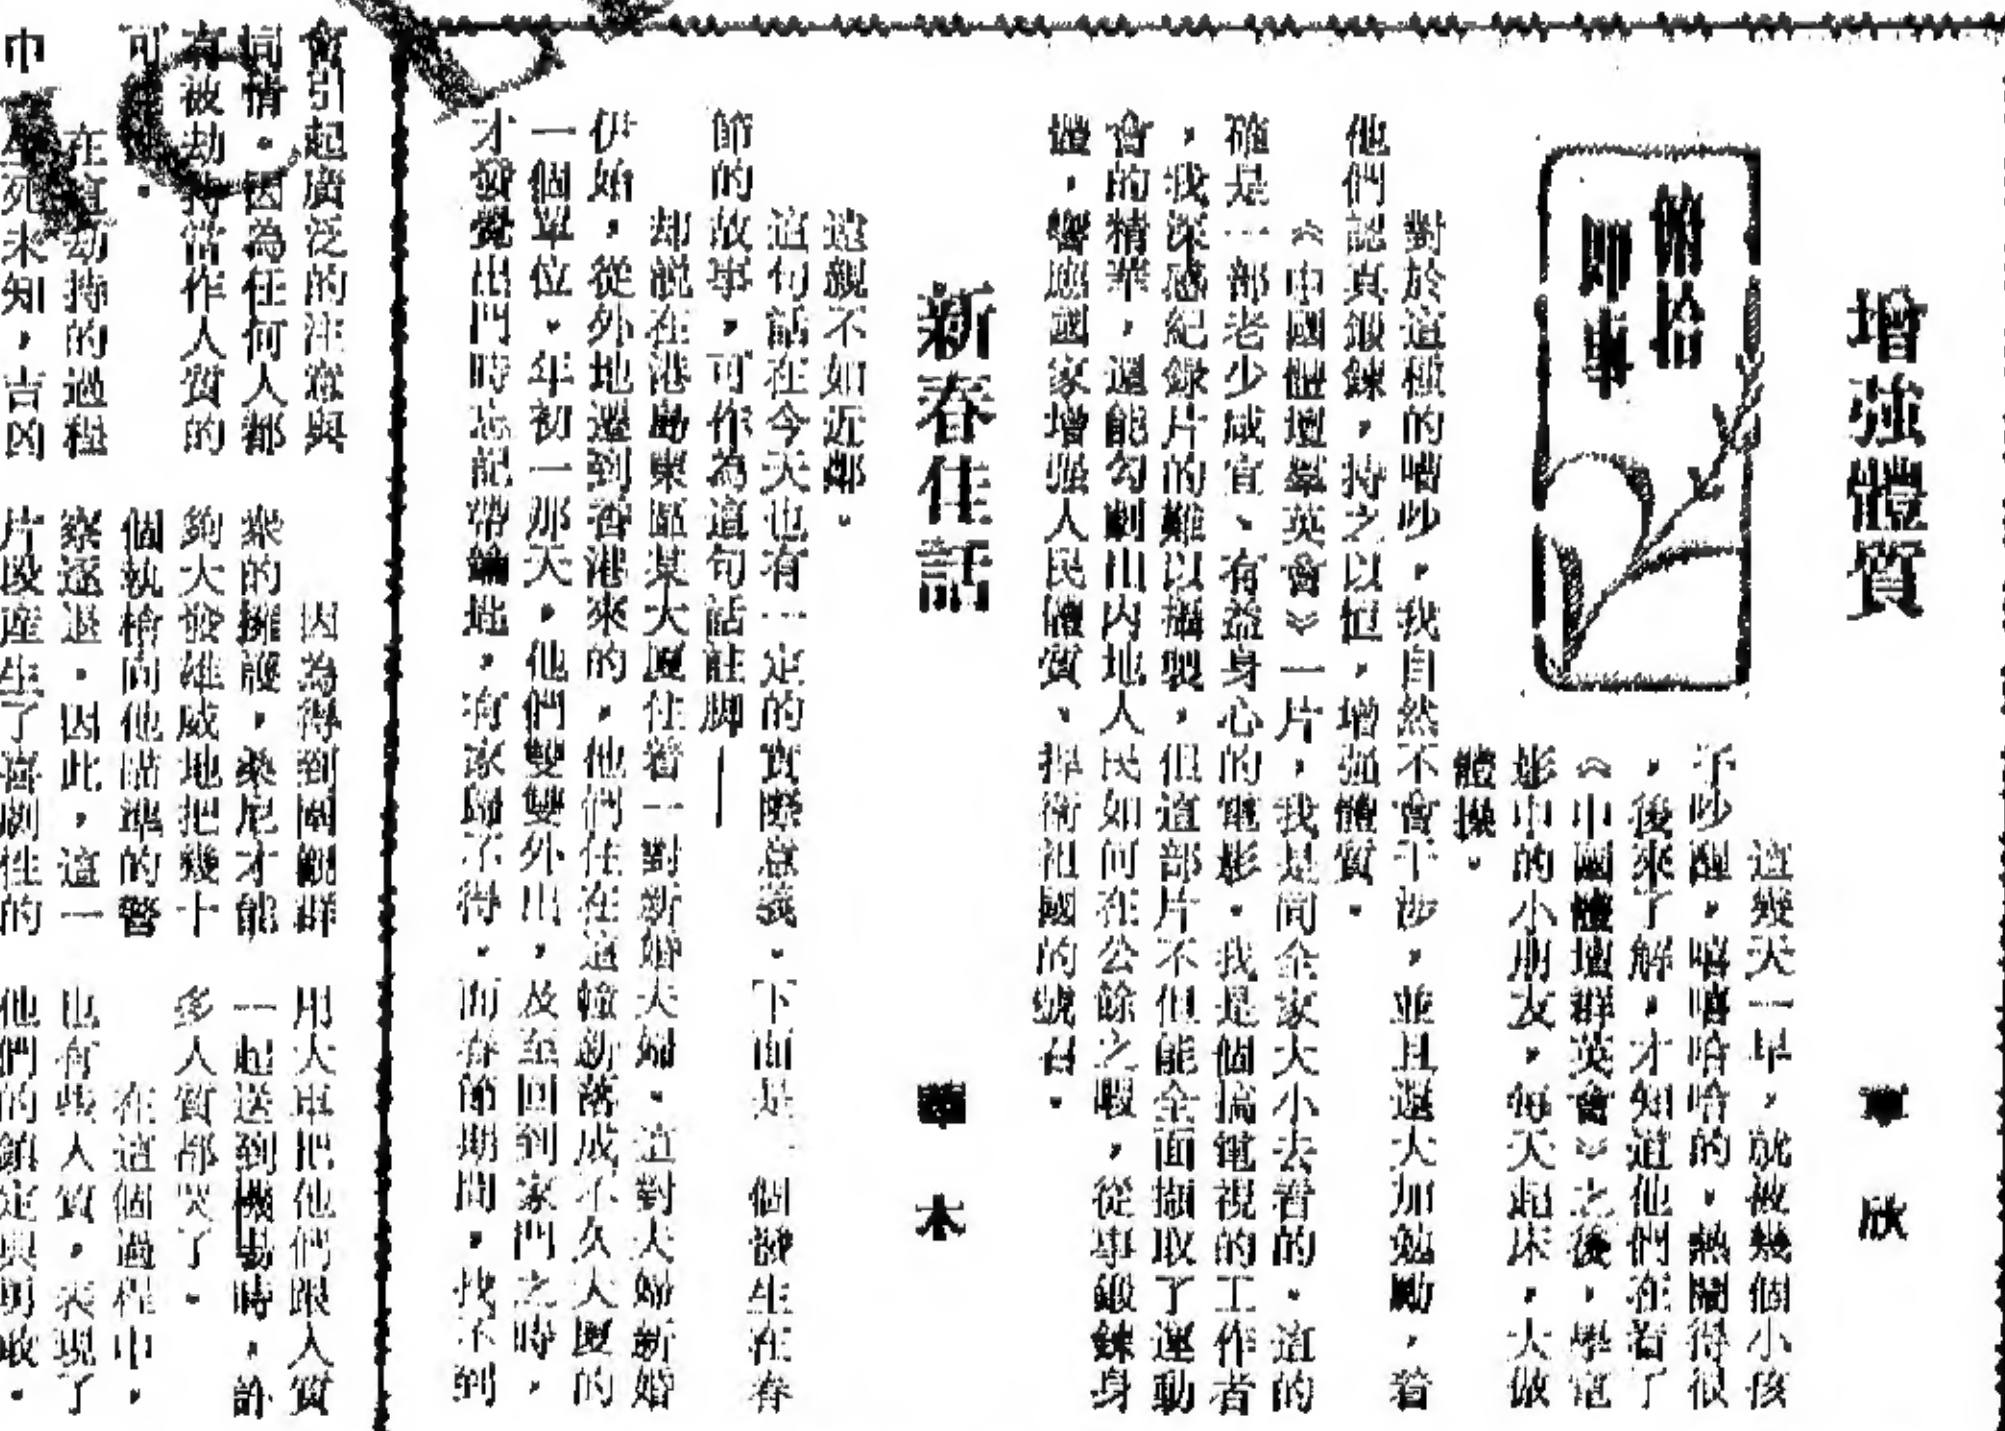 增強體質
欣
俯拾
即事
這幾天一早，就被幾個小孩
子吵醒，嘻嘻哈哈的，熱鬧得很
，後來了解，才知道他們在看了
《中國體壇群英會》之後，學電
影中的小朋友，每天起床，大做
體操。
對於這種的嘈吵，我自然不會干涉，並且還大加勉勵，着
他們認真鍛鍊，持之以恒，增強體質。
《中國體壇羣英會》一片，我是同全家大小去看的。這的
確是一部老少咸宜、有益身心的電影。我是個搞電視的工作者
，我深感紀錄片的難以攝製，但這部片不但能全面擷取了運動
會的精華，還能勾劃出內地人民如何在公餘之暇，從事鍛鍊身
體，響應國家增强人民體質、捍衛祖國的號召。
新春佳話
木
遠親不如近鄰。
這句話在今天也有一定的實際意義。下面是一個發生在春
節的故事，可作為這句話註脚——
却説在港島東區某大厦住着一對新婚夫婦。這對夫婦新婚
伊始，從外地遷到香港來的，他們住在這幢新落成不久大厦的
一個單位。年初一那天，他們雙雙外出，及至回到家門之時，
才發覺出門時忘記帶鑰匙，有家歸不得。而春節期間，找不到
會引起廣泛的注意與
同情。因為任何人都
有被劫持當作人質的
可能。
在這劫持的過程
中，生死未知，吉凶
因為得到圍觀群
衆的擁護，桑尼才能
夠大發雄威地把幾十
個執槍向他瞄準的警
察逐退。因此，這一
片段產生了喜劇性的
用大車把他們跟人質
一起送到機場時，許
多人質都哭了。
在這個過程中，
也有些人質，表現了
他們的鎮定與勇敢。